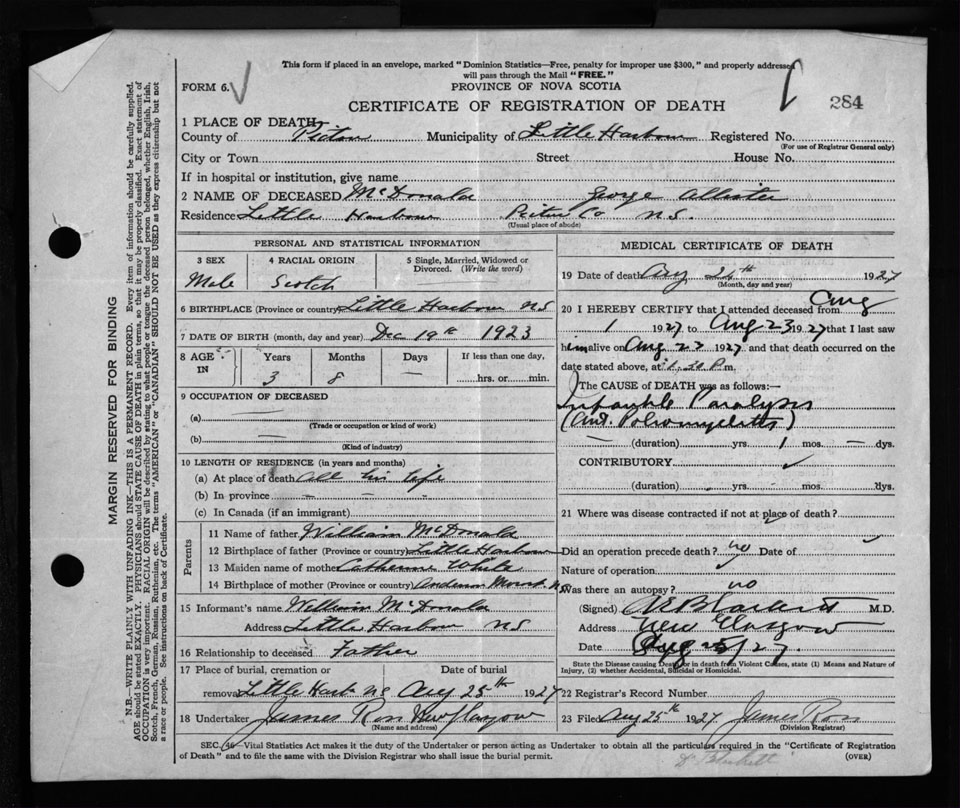 This form if placed in an envelope, marked "Dominion Statistics—Free, penalty for improper use $300," and properly addressed
will pass through the Mail "FREE."
FORM 6.
PROVINCE OF NOVA SCOTIA
CERTIFICATE OF REGISTRATION OF DEATH
284
1 PLACE OF DEATH
County of Pictou Municipality of Little Harbour Registered No.
(For use of Registrar General only)
City or Town Street House No.
If in hospital or institution, give name
2 NAME OF DECEASED McDonald George Allister
Residence Little Harbour Pictou Co N.S.
(Usual place of abode)
PERSONAL AND STATISTICAL INFORMATION
3 SEX 4 RACIAL ORIGIN 5 Single, Married, Widowed or
Divorced. (Write the word)
Male Scotch
6 BIRTHPLACE (Province or country) Little Harbour NS
7 DATE OF BIRTH (month, day and year) Dec 19th 1923
8 AGE Years Months Days If less than one day,
IN 3 8 — hrs. or min.
9 OCCUPATION OF DECEASED
(a) —
(Trade or occupation or kind of work)
(b) —
(Kind of industry)
10 LENGTH OF RESIDENCE (in years and months)
(a) At place of death all his life
(b) In province – – –
(c) In Canada (if an immigrant)
Parents
11 Name of father William McDonald
12 Birthplace of father (Province or country) Little Harbour
13 Maiden name of mother Catherine White
14 Birthplace of mother (Province or country) Anderson Mount. N.S.
15 Informant's name William McDonald
Address Little Harbour NS
16 Relationship to deceased Father
17 Place of burial, cremation or Date of burial
removal Little Harb. NS Aug 25th 1927
18 Undertaker James Ross New Glasgow
(Name and address)
MEDICAL CERTIFICATE OF DEATH
19 Date of death Aug 24th 1927
(Month, day and year)
20 I HEREBY CERTIFY that I attended deceased from Aug
1 1927 to Aug 23 1927 that I last saw
him alive on Aug 23 1927 and that death occurred on the
date stated above, at P m.
The CAUSE OF DEATH was as follows:—
Infantile Paralysis
(Ant. Poliomyelitis)
— (duration) yrs. 1 mos. — dys.
CONTRIBUTORY
(duration) yrs. mos. dys.
21 Where was disease contracted if not at place of death?
Did an operation precede death? no Date of
Nature of operation
Was there an autopsy? no
(Signed) M.D.
Address New Glasgow
Date Aug 25/27.
State the Disease causing Death, or in death from Violent Causes, state (1) Means and Nature of
Injury, (2) whether Accidental, Suicidal or Homicidal.
22 Registrar's Record Number
23 Filed Aug 25th 1927 James Ross
(Division Registrar)
SEC. 46—Vital Statistics Act makes it the duty of the Undertaker or person acting as Undertaker to obtain all the particulars required in the "Certificate of Registration
of Death" and to file the same with the Division Registrar who shall issue the burial permit.
(OVER)
MARGIN RESERVED FOR BINDING
N.B.—WRITE PLAINLY WITH UNFADING INK—THIS IS A PERMANENT RECORD. Every item of information should be carefully supplied.
AGE should be stated EXACTLY. PHYSICIANS should STATE CAUSE OF DEATH in plain terms, so that it may be properly classified. Exact statement of
OCCUPATION is very important. RACIAL ORIGIN will be described by stating to what people or tongue the deceased person belonged, whether English, Irish,
Scotch, French, German, Russian, Ruthenian, etc. The terms "AMERICAN" or "CANADIAN" SHOULD NOT BE USED as they express citizenship but not
a race or people. See instructions on back of Certificate.